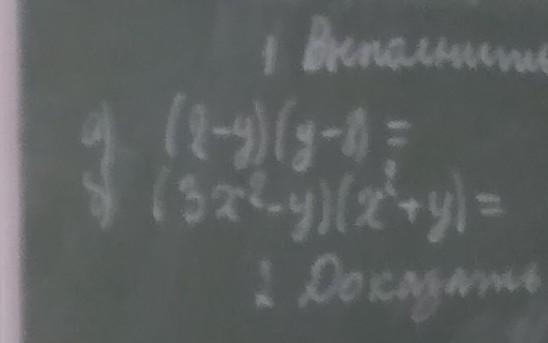 1 Выполнить
а) (8-y)(y-8)=
б) (3x²-y)(x²+y)=
2 Доказать